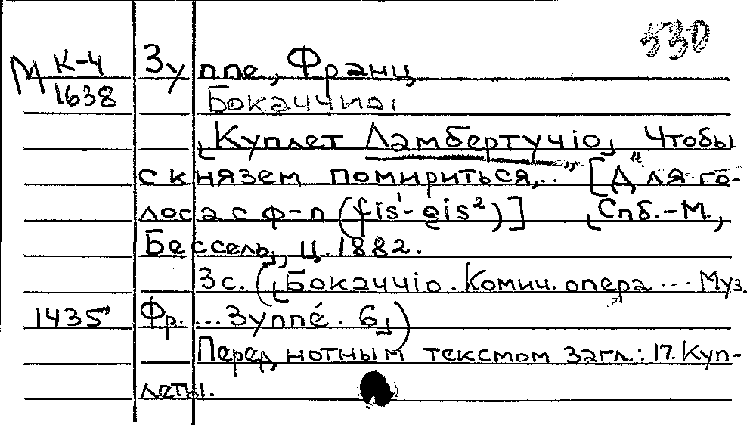 530
М К-4 Зуппе, Франц
1638 Бокаччио.
[Куплет Ламбертучiо] "Чтобы
с князем помириться,.." [Для го-
лоса с ф-п (fis¹-gis²)] [Спб.-М.,
Бессель, ц. 1882.
3с. ([Бокаччiо. Комич. опера ... Муз.
1435 Фр. ... Зуппé. 6])
Перед нотным текстом загл.: 17. Куп-
леты.